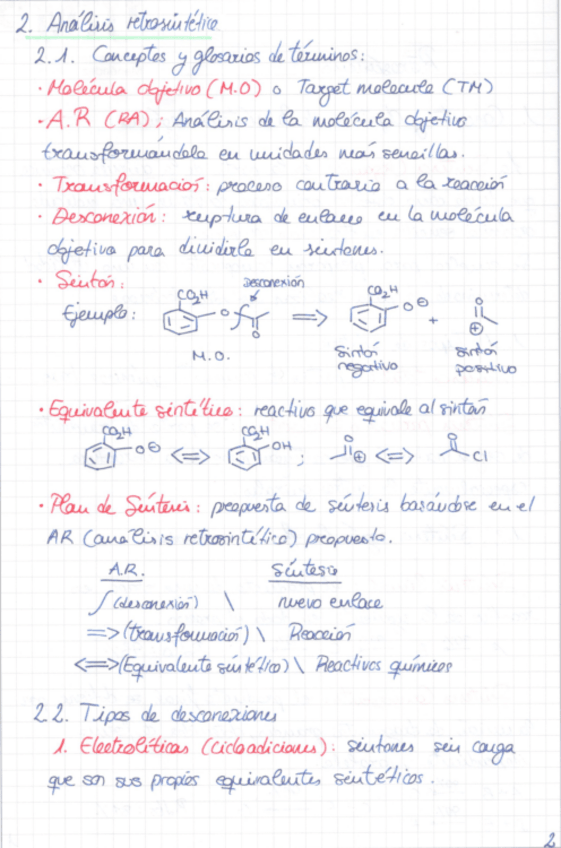 2. Análisis retrosintético
2.1. Conceptos y glosarios de términos:
· Molécula objetivo (M.O) o Target molecule (TM)
· A.R (RA); Análisis de la molécula objetivo
transformándola en unidades más sencillas.
· Transformación: proceso contrario a la reacción
· Desconexión: ruptura de enlaces en la molécula
objetivo para dividirla en sintones.
· Sintón:
Desconexión
Ejemplo:
CO₂H
O
O
⇒
CO₂H
O⊖
+
O
⊕
M.O.
Sintón
negativo
sintón
positivo
· Equivalente sintético: reactivo que equivale al sintón
CO₂H
O⊖
⇔
CO₂H
OH
;
O
⊕
⇔
O
Cl
· Plan de Síntesis: propuesta de síntesis basándose en el
AR (análisis retrosintético) propuesto.
A.R. Síntesis
∫ (desconexión) \ nuevo enlace
=> (transformación) \ Reacción
<=> (Equivalente sintético) \ Reactivos químicos
2.2. Tipos de desconexiones
1. Electrolíticas (Cicloadiciones): sintones sin carga
que son sus propios equivalentes sintéticos.
2